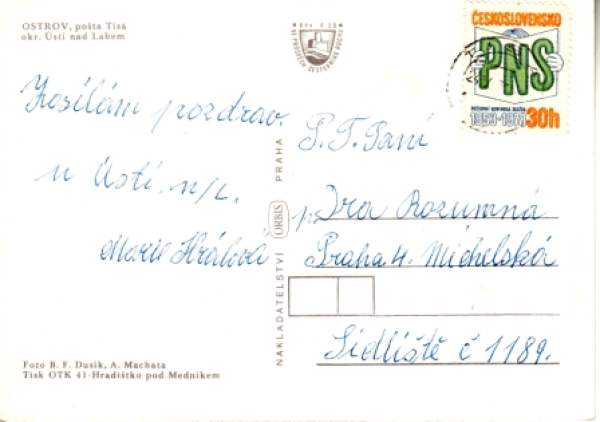 OSTROV, pošta Tisá
okr. Ústí nad Labem
Kčs 0.20
ČESKOSLOVENSKO
PNS
POŠTOVNÍ NOVINOVÁ SLUŽBA
1953-1978 30h
Zasílám pozdrav.
z Ústí. n/L.
Marie Králová
NAKLADATELSTVÍ ORBIS PRAHA
P. T. Paní
Iva Rozumná
Praha 4. Michelská
Sídliště č 1189.
Foto B. F. Dusík, A. Machata
Tisk OTK 41-Hradištko pod Medníkem